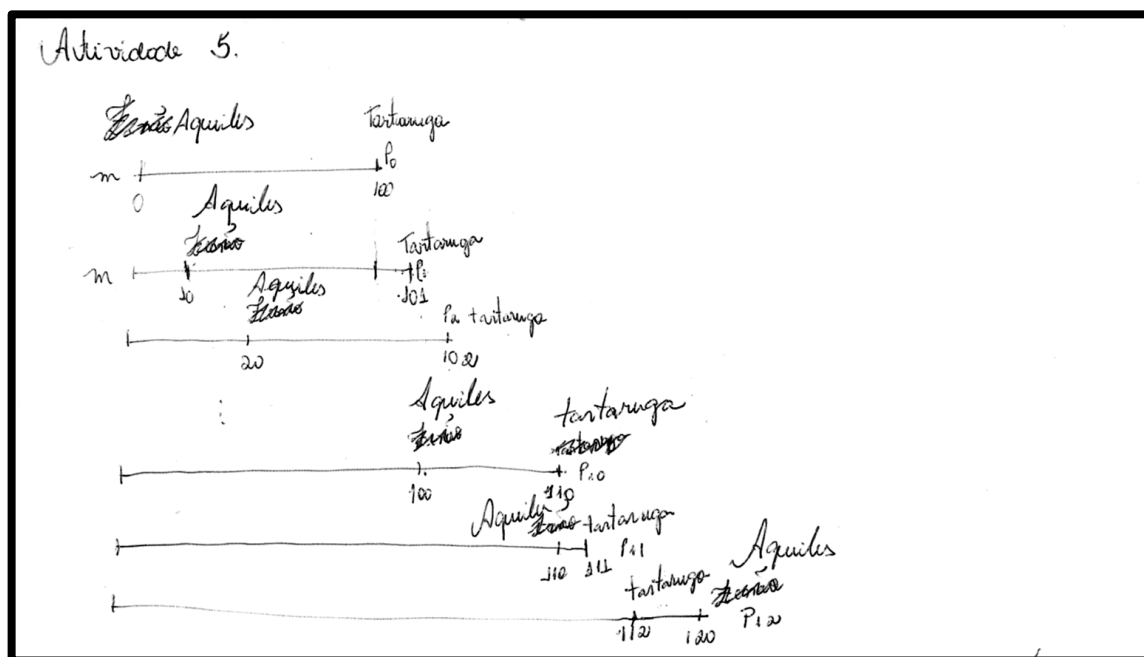 Atividade 5.
Aquiles Tartaruga
m P0
0 100
Aquiles
Tartaruga
m P1
10 101
Aquiles
P2 tartaruga
20 102
Aquiles tartaruga
P10
100 110
Aquiles tartaruga
P11
110 111
tartaruga Aquiles
P12
112 120